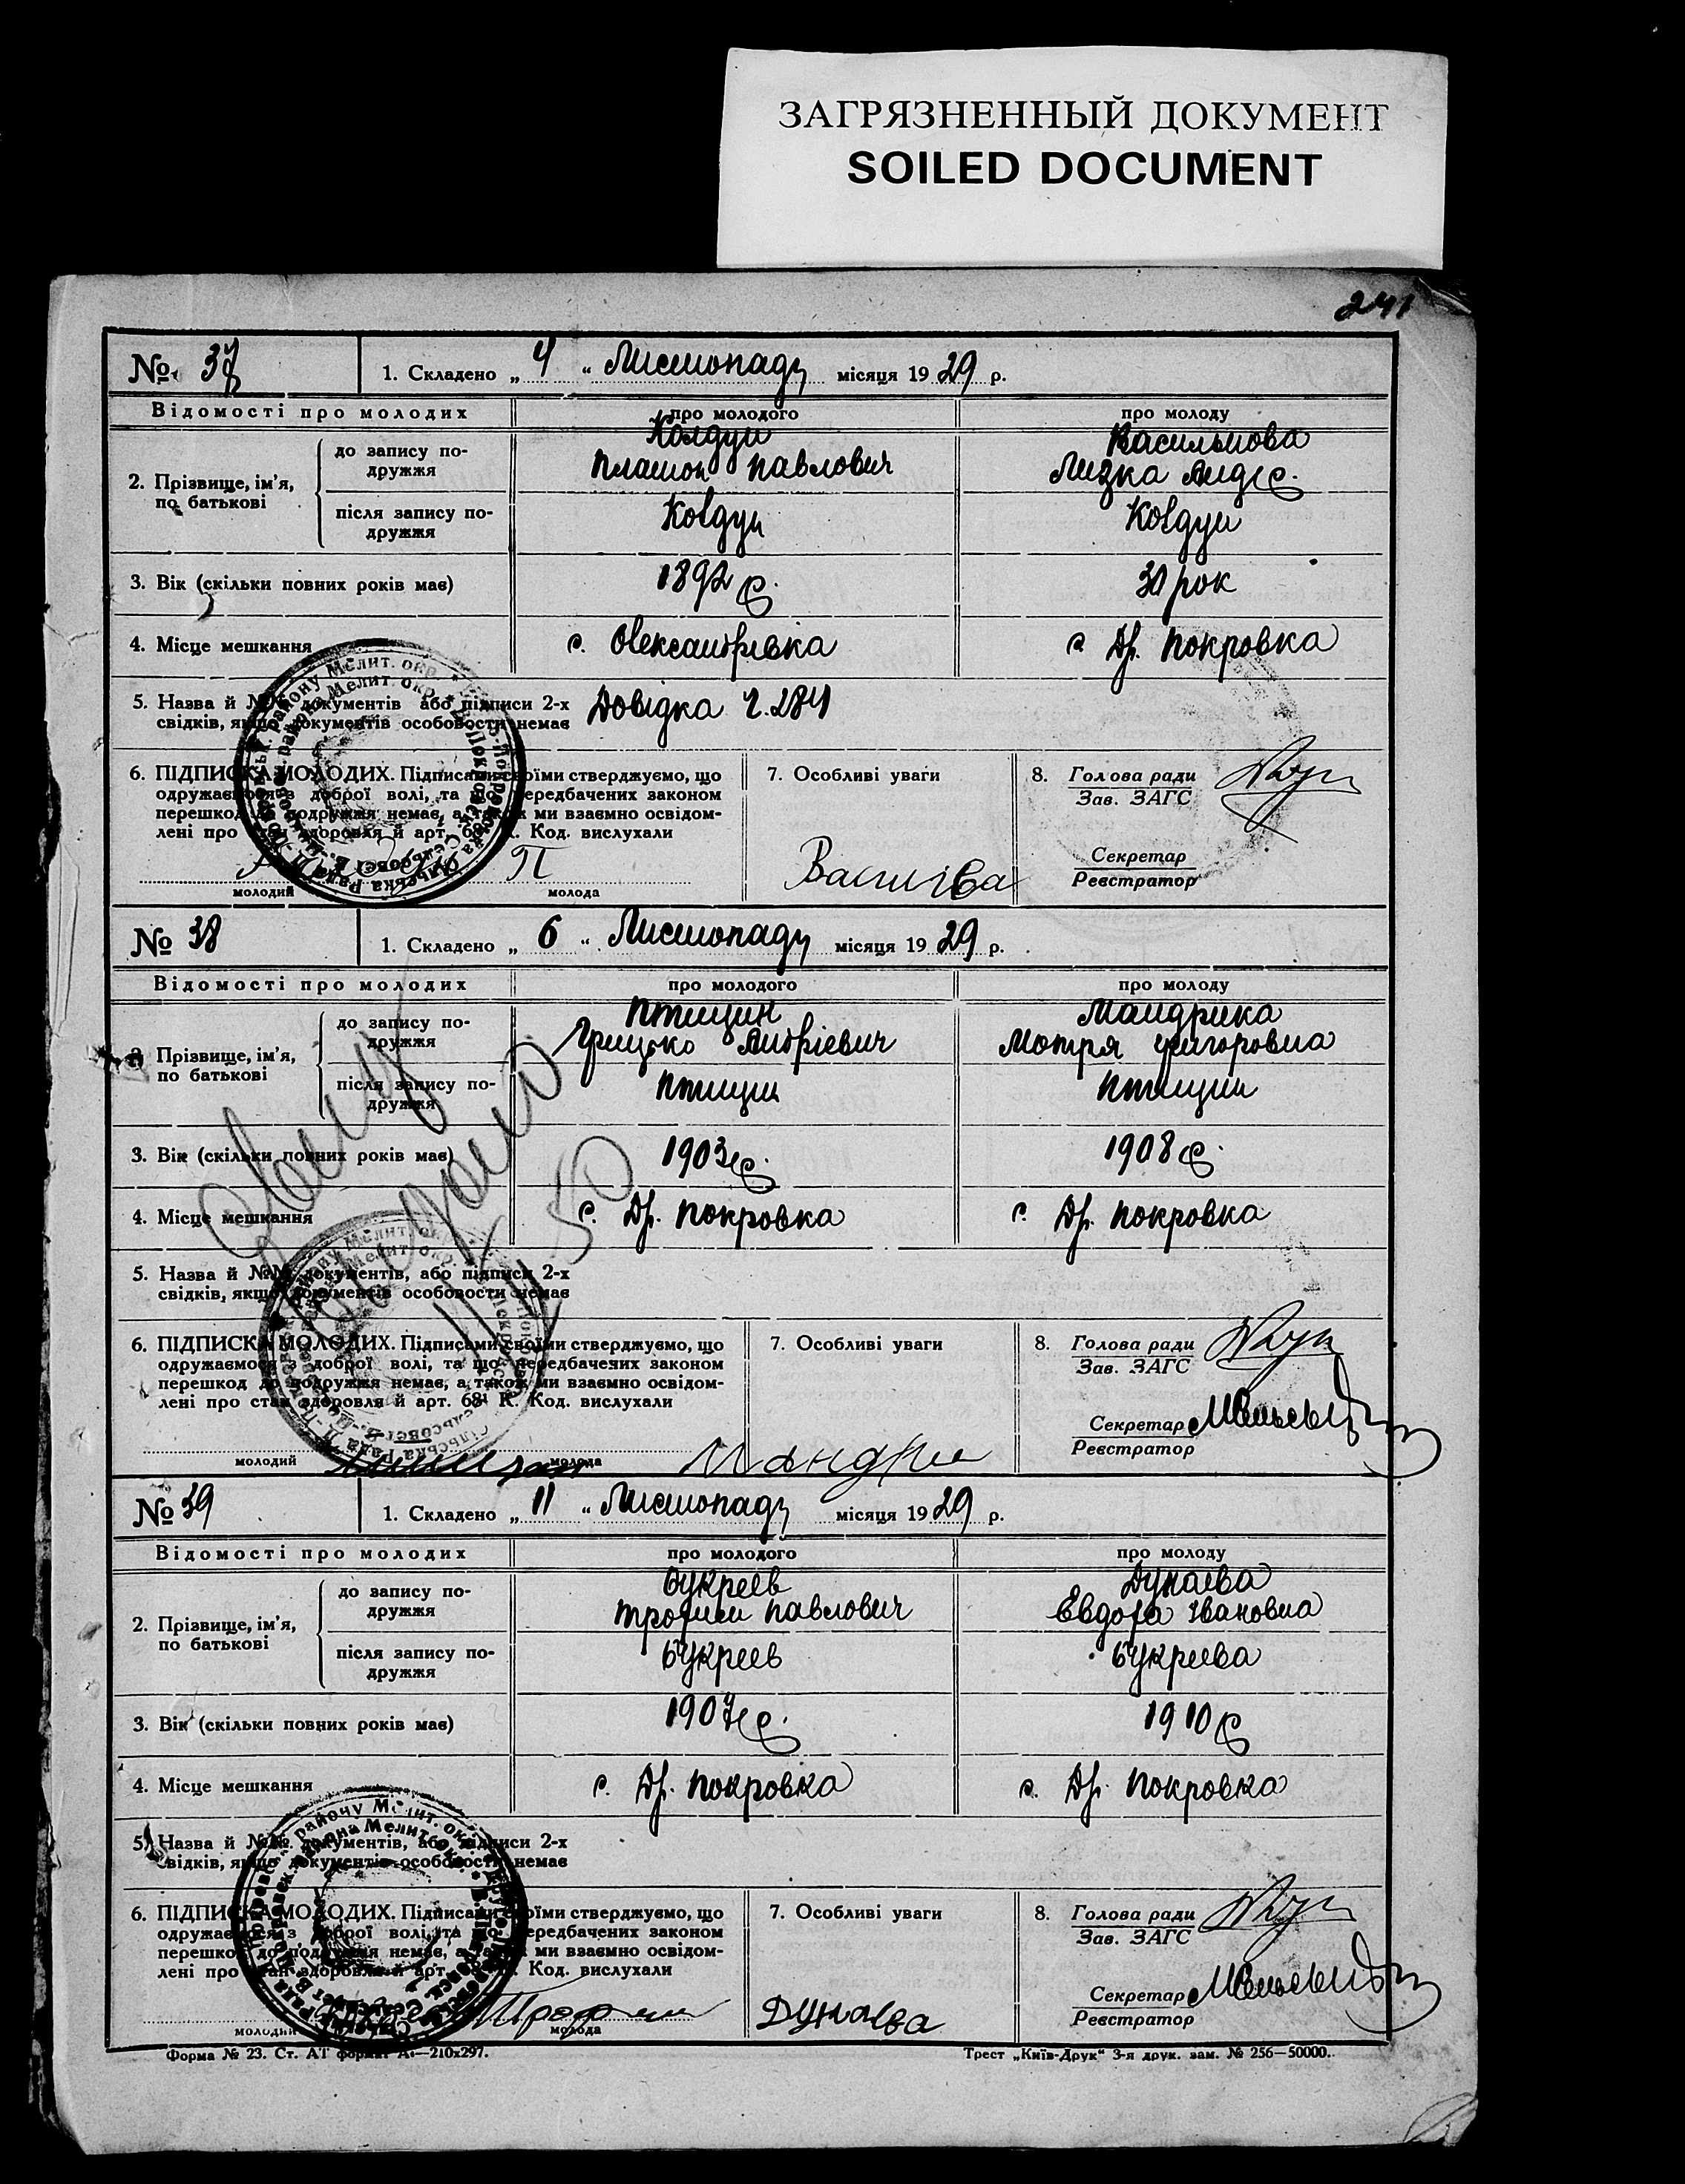 ЗАГРЯЗНЕННЫЙ ДОКУМЕНТ
SOILED DOCUMENT
241
№ 37 1. Складено „ 4 “ Листопаду місяця 1929 р.
Відомості про молодих про молодого про молоду
2. Прізвище, ім’я, по батькові
до запису подружжя
Колдун
Платон Павлович
Васильова
Лизка Андр.
після запису подружжя
Ковдун
Ковдун
3. Вік (скільки повних років має) 1892 р. 30 рок
4. Місце мешкання с. Олександрівка с. Др. Покровка
5. Назва й №№ документів або підписи 2-х
свідків, якщо документів особовости немає
Довідка Ч. 284
6. ПІДПИСКА МОЛОДИХ. Підписами своїми стверджуємо, що
одружаємося з доброї волі, та що передбачених законом
перешкод до подружжя немає, а також ми взаємно освідом-
лені про стан здоровля й арт. 68 К. Код. вислухали
молодий молода
7. Особливі уваги
8. Голова ради
Зав. ЗАГС
Секретар
Реєстратор
№ 38 1. Складено „ 6 “ Листопаду місяця 1929 р.
Відомості про молодих про молодого про молоду
2. Прізвище, ім’я, по батькові
до запису подружжя
Птицин
Грицько Андріевич
Мандрика
Мотря Григоровна
після запису подружжя
Птицин
Птицин
3. Вік (скільки повних років має) 1903 р. 1908 р.
4. Місце мешкання с. Др. Покровка с. Др. Покровка
5. Назва й №№ документів, або підписи 2-х
свідків, якщо документів особовости немає
6. ПІДПИСКА МОЛОДИХ. Підписами своїми стверджуємо, що
одружаємося з доброї волі, та що передбачених законом
перешкод до подружжя немає, а також ми взаємно освідом-
лені про стан здоровля й арт. 68 К. Код. вислухали
молодий молода
7. Особливі уваги
8. Голова ради
Зав. ЗАГС
Секретар
Реєстратор
№ 39 1. Складено „ 11 “ Листопаду місяця 1929 р.
Відомості про молодих про молодого про молоду
2. Прізвище, ім’я, по батькові
до запису подружжя
Букреев
Трофим Павлович
Дунаева
Евдора Івановна
після запису подружжя
Букреев
Букреева
3. Вік (скільки повних років має) 1907 р. 1910 р.
4. Місце мешкання с. Др. Покровка с. Др. Покровка
5. Назва й №№ документів, або підписи 2-х
свідків, якщо документів особовости немає
6. ПІДПИСКА МОЛОДИХ. Підписами своїми стверджуємо, що
одружаємося з доброї волі, та що передбачених законом
перешкод до подружжя немає, а також ми взаємно освідом-
лені про стан здоровля й арт. 68 К. Код. вислухали
Трофим
молодий молода
Дунаева
7. Особливі уваги
8. Голова ради
Зав. ЗАГС
Секретар
Реєстратор
Форма № 23. Ст. АТ формат А4—210х297.
Трест „Київ-Друк“ 3-я друк. зам. № 256—50000.